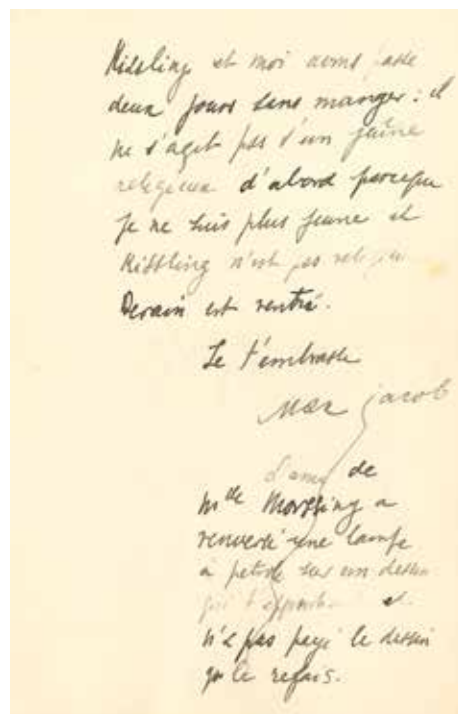 Kissling et moi avons passé
deux jours sans manger : il
ne s'agit pas d'un jeûne
religieux d'abord parceque
je ne suis plus jeune et
Kissling n'est pas religieux
Derain est rentré.
Je t'embrasse
Max Jacob
L'ami de
Mlle Morssing a
renversé une lampe
à pétrole sur un dessin
et
n'a pas payé le dessin
je le refais.